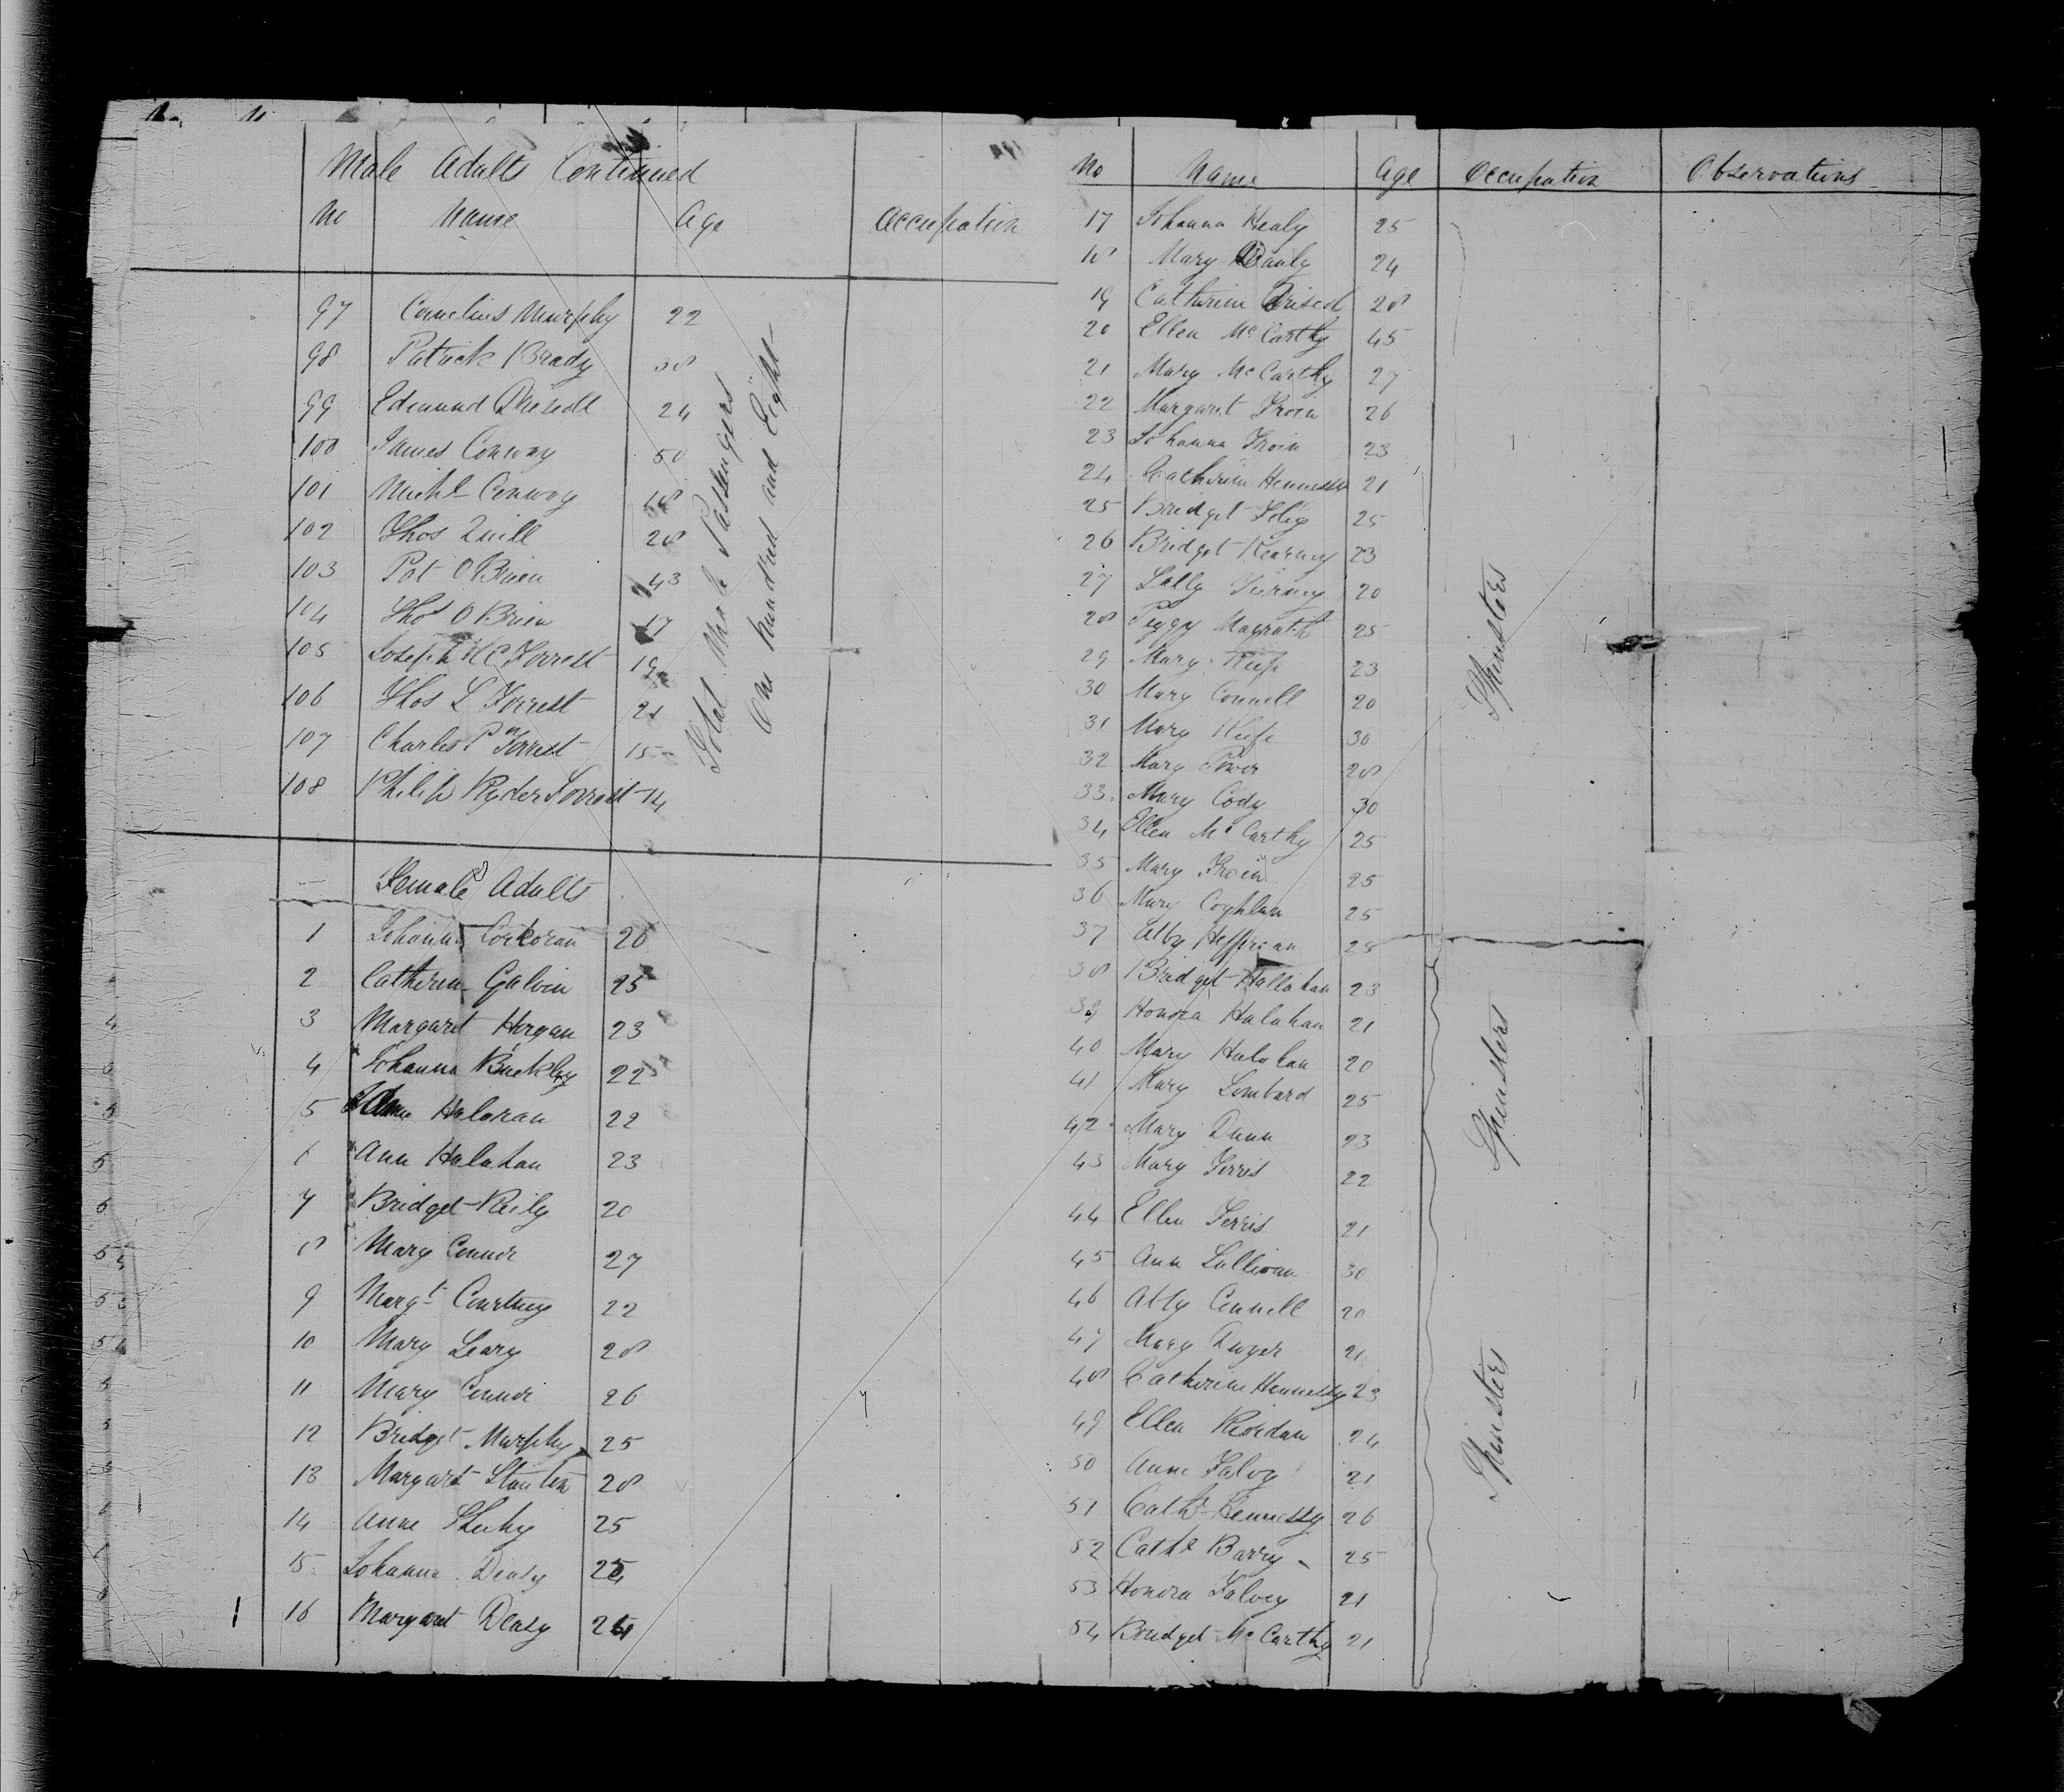 Male Adults Continued
No Name Age Occupation
97 Cornelius Murphy 22
98 Patrick Brady 38
99 Edmund Driscoll 24
100 James Conway 50
101 Michl Conway 18
102 Thos Quill 28
103 Pat O Brien 43
104 Thos O Brien 17
105 Joseph Forrest 19
106 Thos L Forrest 21
107 Charles P Forrest 15
108 Philip Ryder Forrest 14
Total Male Passengers
One hundred and Eight
Female Adults
1 Johanna Corkoran 26
2 Catherine Galvin 25
3 Margaret Horgan 23
4 Johanna Buckley 22
5 Ann Haloran 22
6 Ann Halahan 23
7 Bridget Reily 20
8 Mary Connor 27
9 Margt Courtney 22
10 Mary Leary 28
11 Mary Connor 26
12 Bridget Murphy 25
13 Margaret Stanton 28
14 Anne Sheehy 25
15 Johanna Deasy
16 Margaret Deasy
No Name Age Occupation Observations
17 Johanna Healy 25
18 Mary Dauly 24
19 Catherine Driscol 28
20 Ellen Mc Carthy 45
21 Mary Mc Carthy 27
22 Margaret Froin 26
23 Johanna Froin 23
24 Catherine Hennessy 21
25 Bridget 25
26 Bridget Kearney 23
27 20
28 Peggy Magrath 25
29 Mary Keefe 23
30 Mary Connell 20
31 Mary Keefe 30
32 Mary Power 28
33 Mary Cody 30
34 Ellen Mc Carthy 25
35 Mary Froin 25
36 Mary Coghlan 25
37 Abby Heffernan 28
38 Bridget Hallahan 23
39 Honora Halahan 21
40 Mary Halahan 20
41 Mary Lombard 25
42 Mary Dunn 23
43 Mary Ferris 22
44 Ellen Ferris 21
45 Ann Sullivan 30
46 Abby Connell 20
47 Mary Dwyer 21
48 Catherine Hennessy 23
49 Ellen Riordan 24
50 Anne Falvy 21
51 Cathe Hennessy 26
52 Cathe Barry 25
53 Honora Falvey 21
54 Bridget Mc Carthy 21
Spinsters
Spinsters
Spinsters